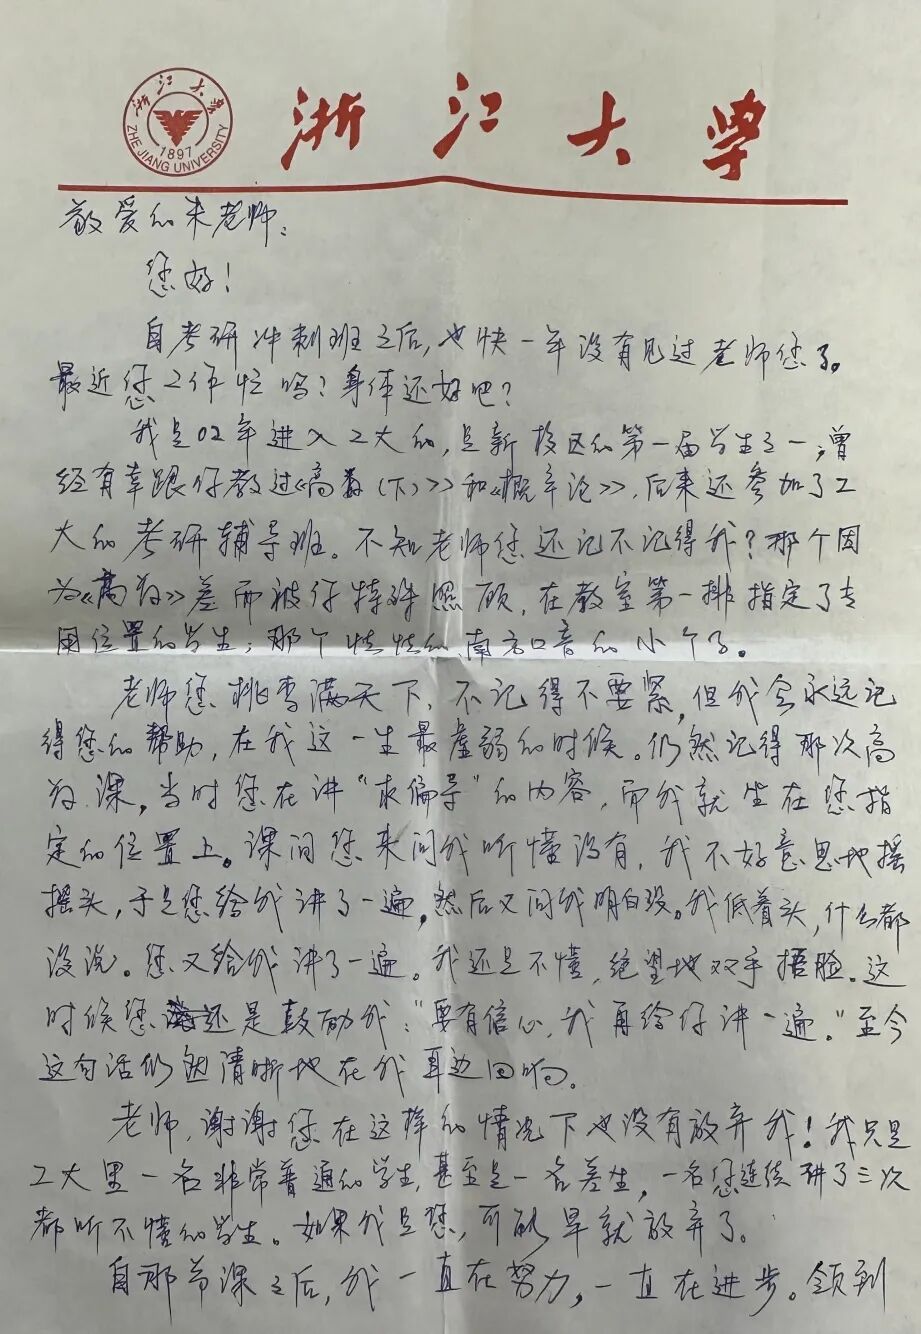 浙江大学
ZHEJIANG UNIVERSITY
1897
浙江大学
敬爱的朱老师:
您好!
自考研冲刺班之后,也快一年没有见过老师您了。
最近您工作忙吗?身体还好吧?
我是02年进入工大的,是新校区的第一届学生之一,曾
经有幸跟你教过《高数(下)》和《概率论》,后来还参加了工
大的考研辅导班。不知老师您还记不记得我?那个因
为《高数》差而被你特殊照顾,在教室第一排指定了专
用位置的学生;那个怯怯的、南方口音的小个子。
老师您桃李满天下,不记得不要紧,但我会永远记
得您的帮助,在我这一生最虚弱的时候。仍然记得那次高
数课,当时您在讲“求偏导”的内容,而我就坐在您指
定的位置上。课间您来问我听懂没有,我不好意思地摇
摇头,于是您给我讲了一遍,然后又问我明白没。我低着头,什么都
没说。您又给我讲了一遍。我还是不懂,绝望地双手捂脸。这
时候您还是鼓励我:“要有信心,我再给你讲一遍。”至今
这句话仍然清晰地在我耳边回响。
老师,谢谢您在这样的情况下也没有放弃我!我只是
工大里一名非常普通的学生,甚至是一名差生,一名您连续讲了三次
都听不懂的学生。如果我是您,可能早就放弃了。
自那节课之后,我一直在努力,一直在进步。领到